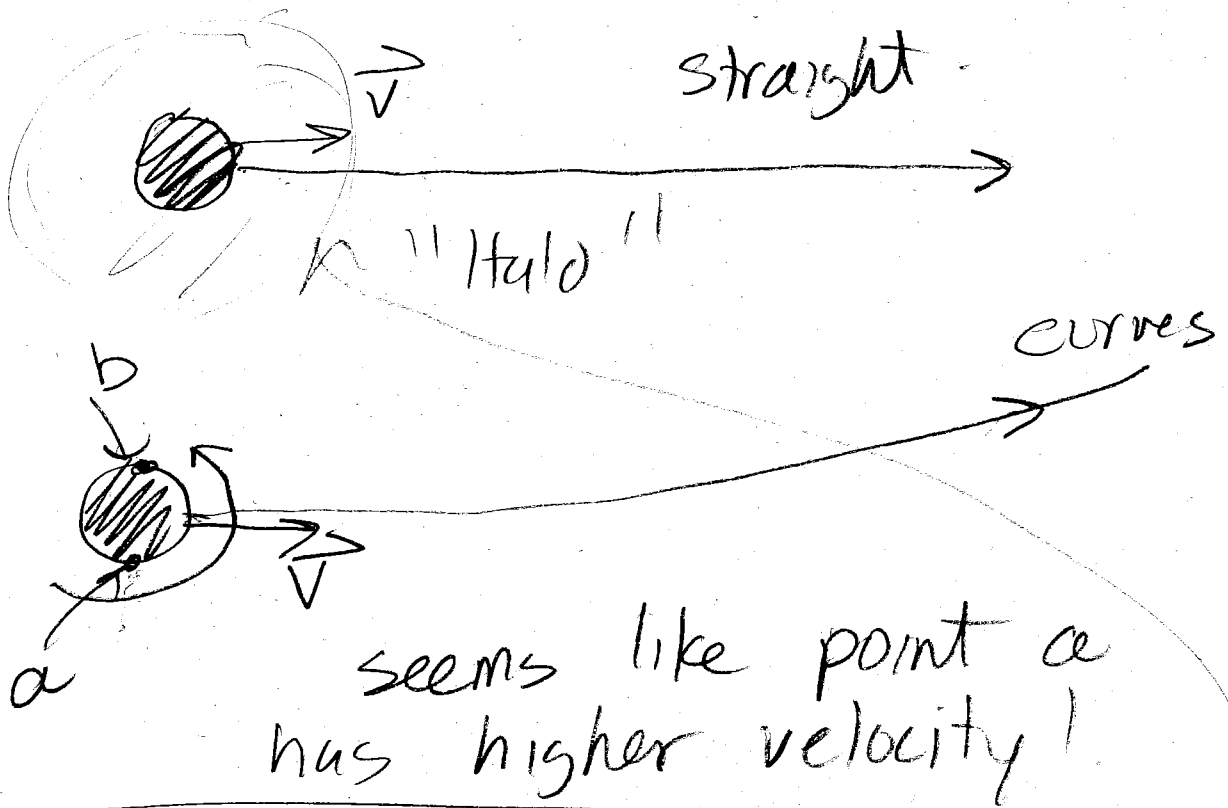 V
straight
"Halo"
curves
b
V
a
seems like point a
has higher velocity!